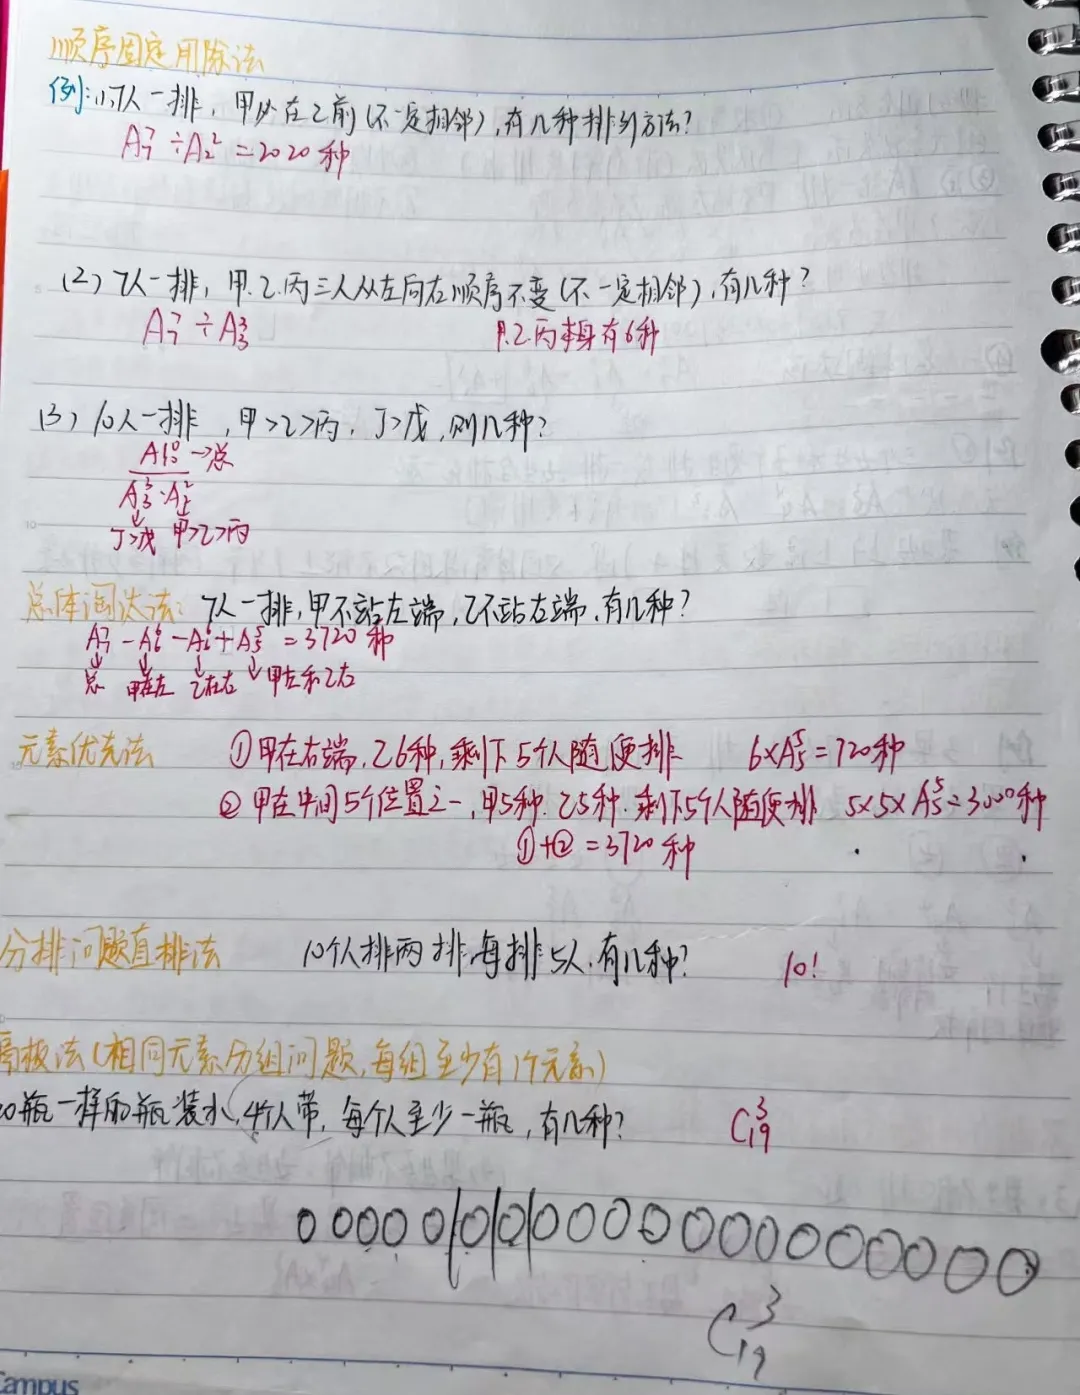 顺序固定用除法
例:(1)7人一排,甲必在乙前(不一定相邻),有几种排列方法?
A₇⁷÷A₂²=2020种
(2)7人一排,甲.乙.丙三人从左向右顺序不变(不一定相邻),有几种?
A₇⁷÷A₃³ 甲.乙.丙本身有6种
(3)10人一排,甲>乙>丙,丁>戊,则几种?
A₁₀¹⁰→总
A₃³·A₂²
丁>戊 甲>乙>丙
总体淘汰法: 7人一排,甲不站左端,乙不站右端,有几种?
A₇⁷-A₆⁶-A₆⁶+A₅⁵=3720种
总 甲在左 乙在右 甲左和乙右
元素优先法 ①甲在右端,乙6种,剩下5个人随便排 6×A₅⁵=720种
②甲在中间5个位置之一,甲5种.乙5种.剩下5个人随便排 5×5×A₅⁵=3000种
①+②=3720种
分排问题直排法 10个人排两排,每排5人,有几种? 10!
隔板法(相同元素分组问题,每组至少有1个元素)
20瓶一样的瓶装水,4个人带,每个人至少一瓶,有几种? C₁₉³
C₁₉³
Campus